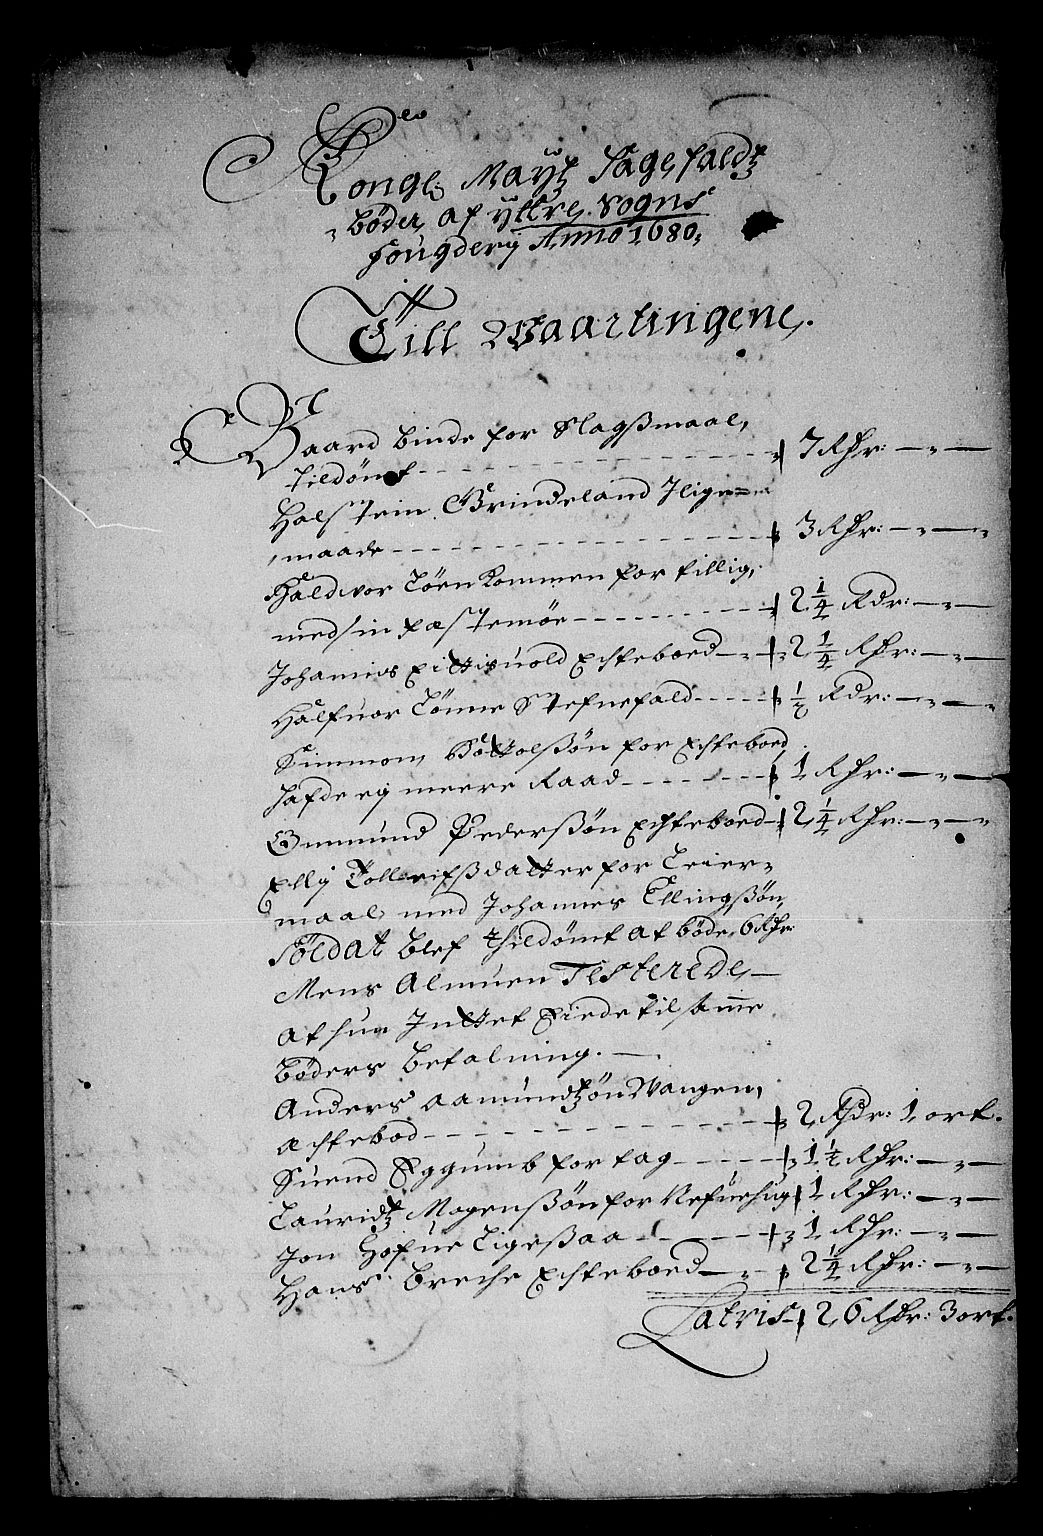 Kongl: Maytz Sagefaldz
bøder, af yttre, Sogns
fougderij Anno 1680,
Till Waartingene,.
Baard Binde for Slagszmaal,
tildømt - - - 7 Rdr: — „ —
Halstein Grindeland Ilige=
maade - - - 3 Rdr: — „ — „
Haldvor Tørnkommen for tillig,
med sin fæstemøe - - - 2 1/4 Rdr: — „ —
Johannis Eittisuold Echteboed — „ 2 1/4 Rdr: — „ —
Halfuor Tønne Stefnefald - - - 1/2 Rdr: — „ — „
Simmon, Bottolszøn for Echteboed,
hafde ej meere Raad - - - 1 Rdr: — „ —
Ommund Pederszøn Echteboed - 2 1/4 Rdr: — „ — „
Elli Tollerifszdatter for Leier=
maal, med Johannes Ellingszøn,
Soldat blef thildømt at bøde, 6 Rdr:
Mens Almuen Testerede, —
at hun Inttet Eiede til samme
bøders betalning. —
Anders Aamundtzøn Wangen,
Echtebod - - - 2 Rdr: 1, ort.
Suend Eggumb for tag - - - 1 1/2 Rdr: — „ —
Lauridtz Mogenszøn for Nefuehug 1 Rdr: — „ —
Jon Hofue Ligeszaa - - - 1 Rdr: — „ —
Hans Breche Echteboed — „ 2 1/4 Rdr: — „ —
Latris 26 Rdr: 3 ort.